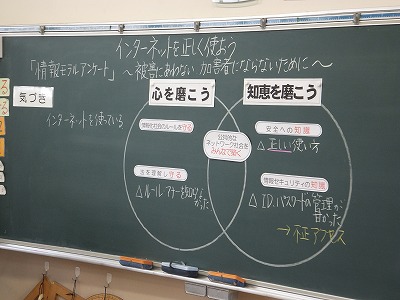 インターネットを正しく使おう
「情報モラルアンケート」 ～被害にあわない 加害者にならないために～
気づき
心を磨こう
知恵を磨こう
インターネットを使っている
情報化社会のルールを守る
安全への知識
公共的な
ネットワーク社会を
みんなで築く
△正しい使い方
法を理解し守る
情報セキュリティの知識
△ルール、マナーを知らな
かった
△ID.パスワードの管理が
甘かった
→不正アクセス